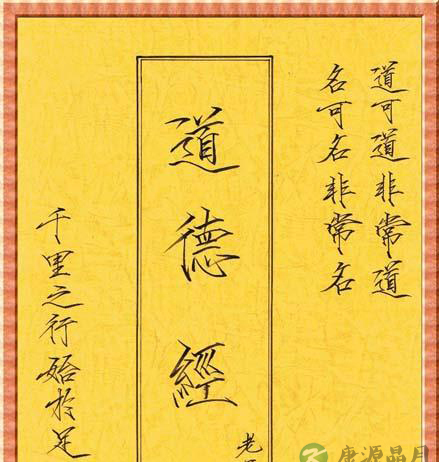 道可道非常道
名可名非常名
道德經
老
千里之行始於足
唐源晶月